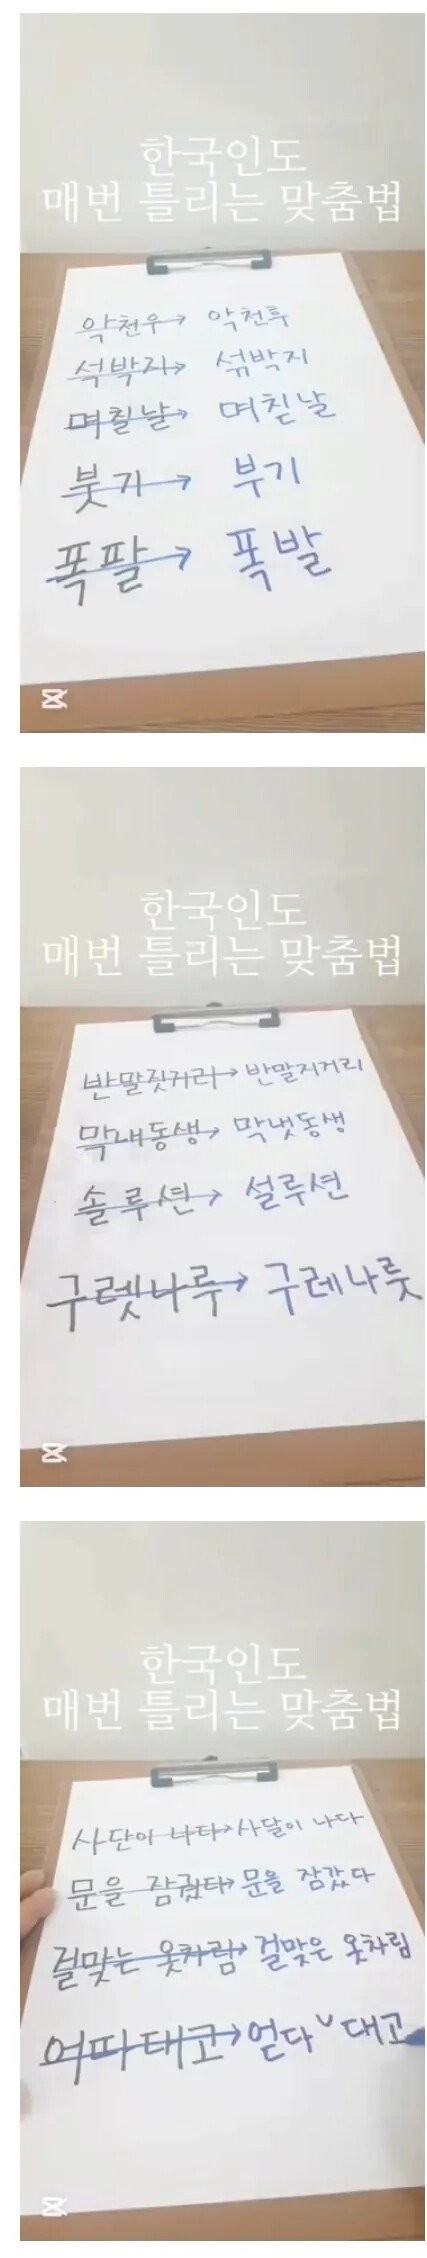 한국인도
매번 틀리는 맞춤법
악천우→ 악천후
석박지→ 섞박지
며칠날→ 며칟날
붓기→ 부기
폭팔→ 폭발
한국인도
매번 틀리는 맞춤법
반말짓거리→ 반말지거리
막내동생→ 막냇동생
솔루션→ 설루션
구렛나루→ 구레나룻
한국인도
매번 틀리는 맞춤법
사단이 나다→사달이 나다
문을 잠궜다→문을 잠갔다
걸맞는 옷차림→걸맞은 옷차림
어따대고→얻다∨대고